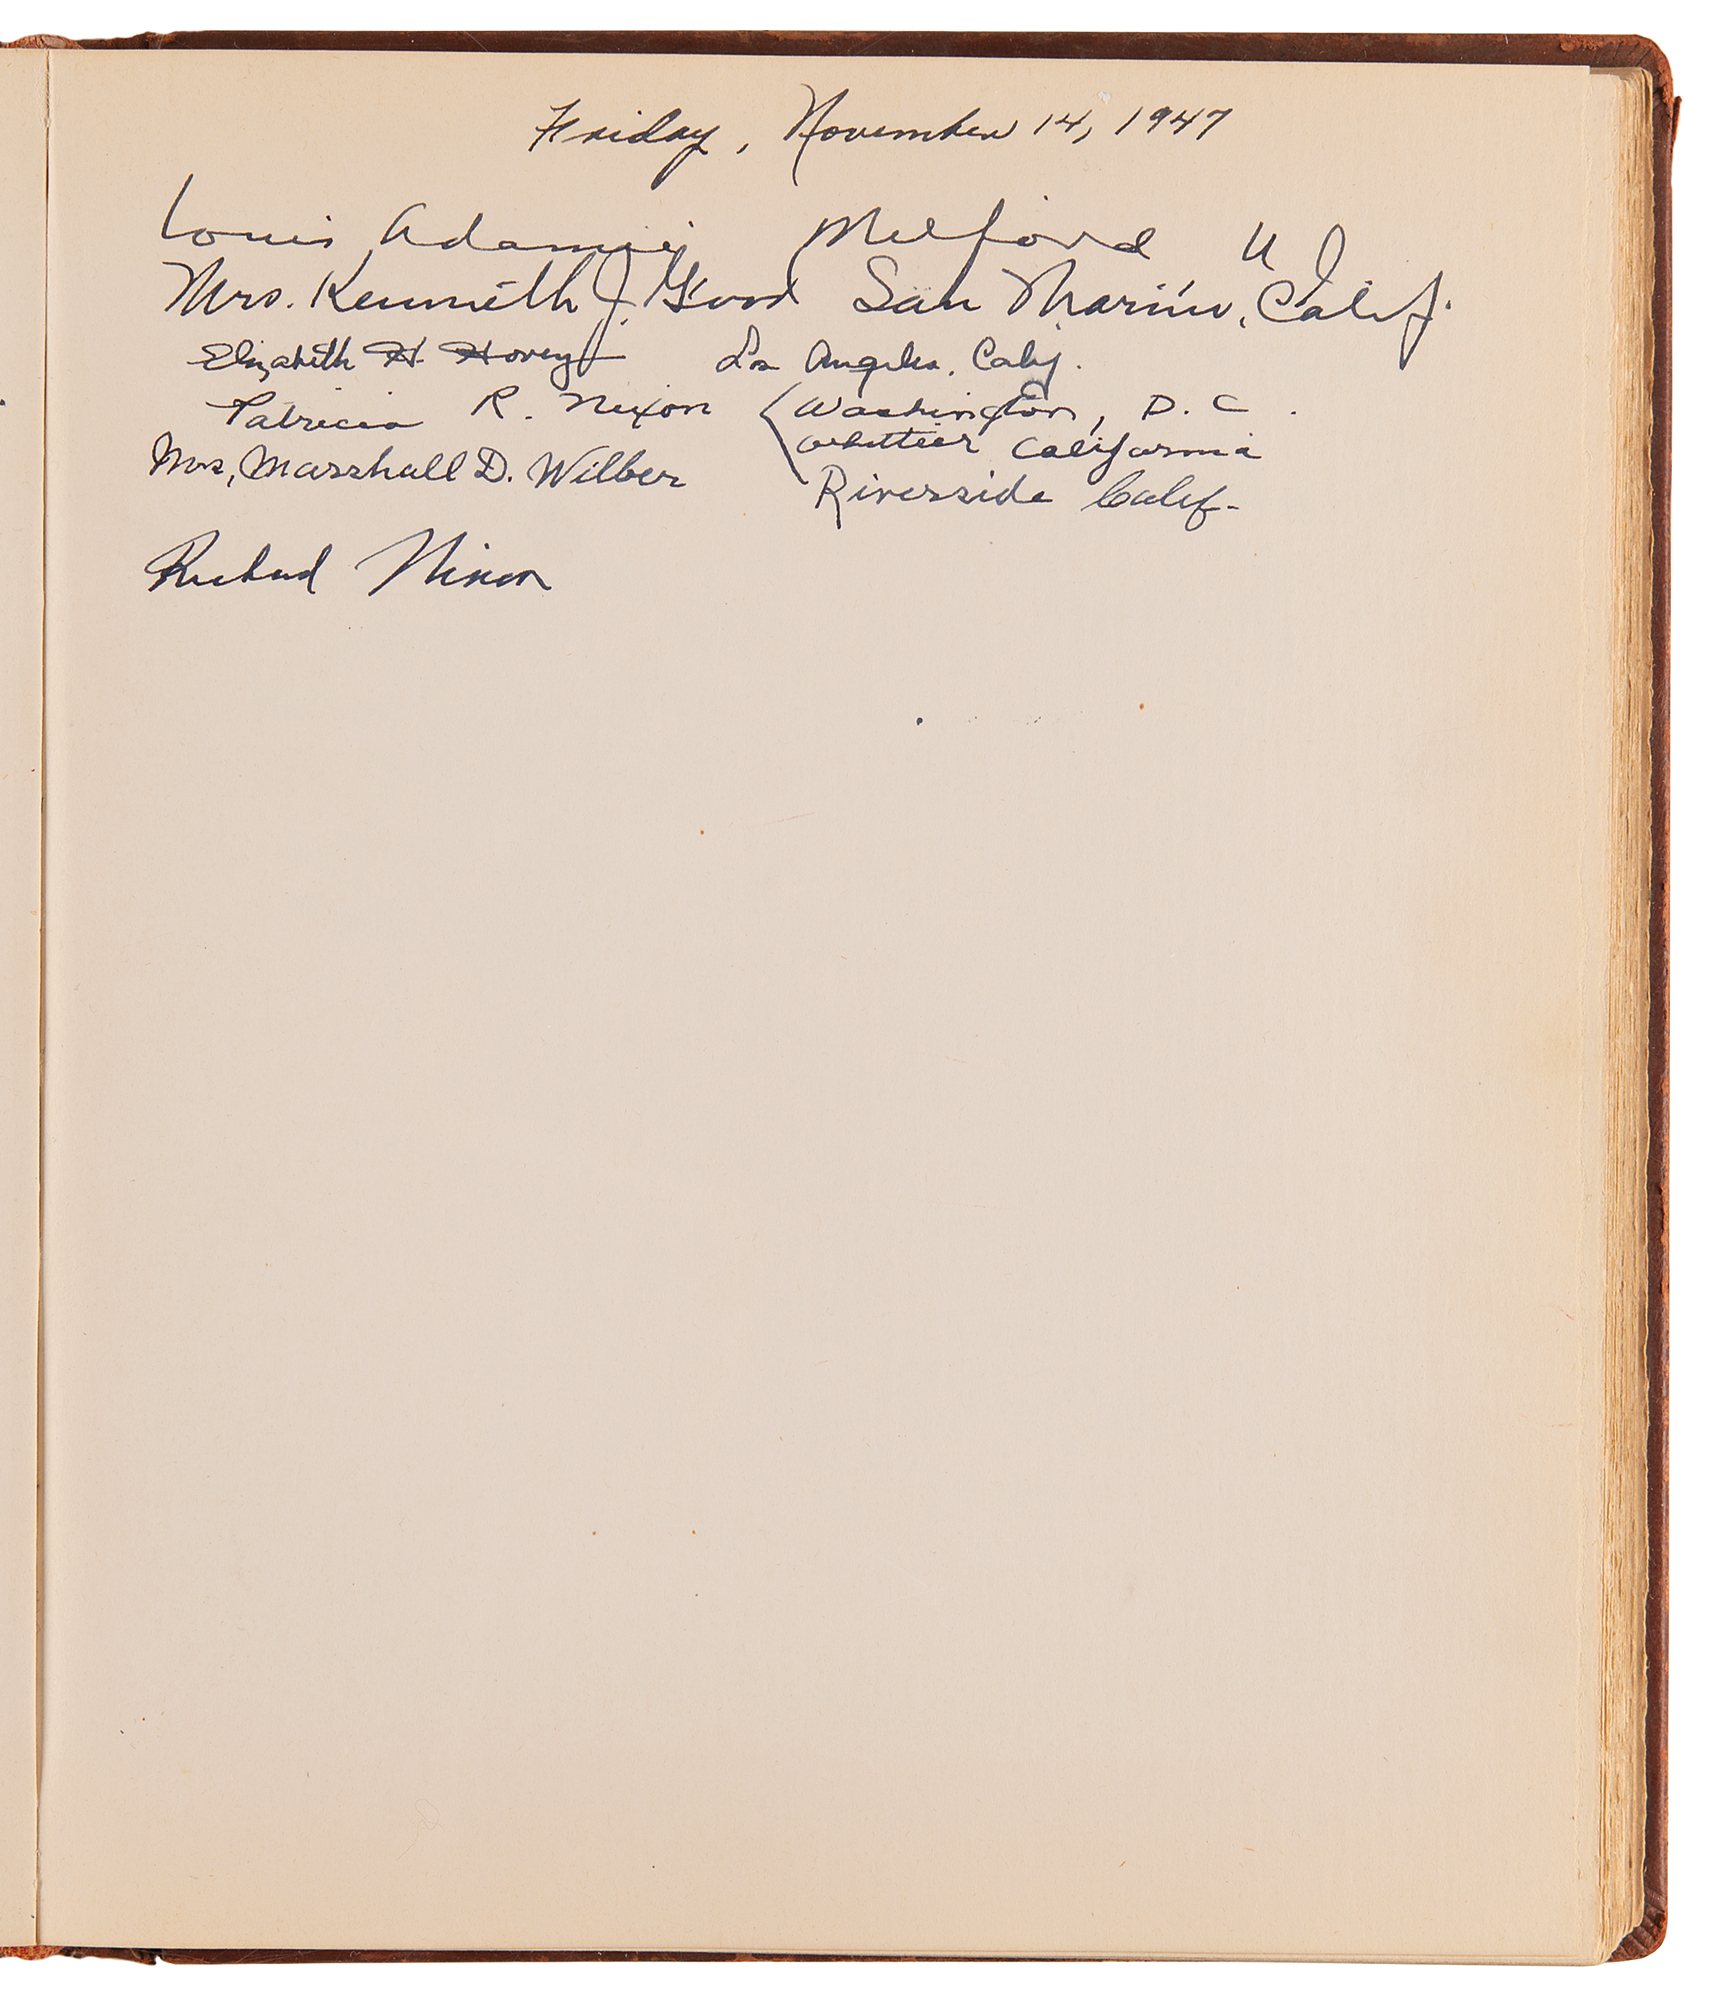 Friday, November 14, 1947
Louis Adamic Milford N J
Mrs. Kenneth J. Good San Marino, Calif.
Elizabeth H. Hovey Los Angeles, Calif.
Patricia R. Nixon Washington, D. C.
Whittier California
Mrs, Marshall D. Wilber Riverside Calif-
Richard Nixon